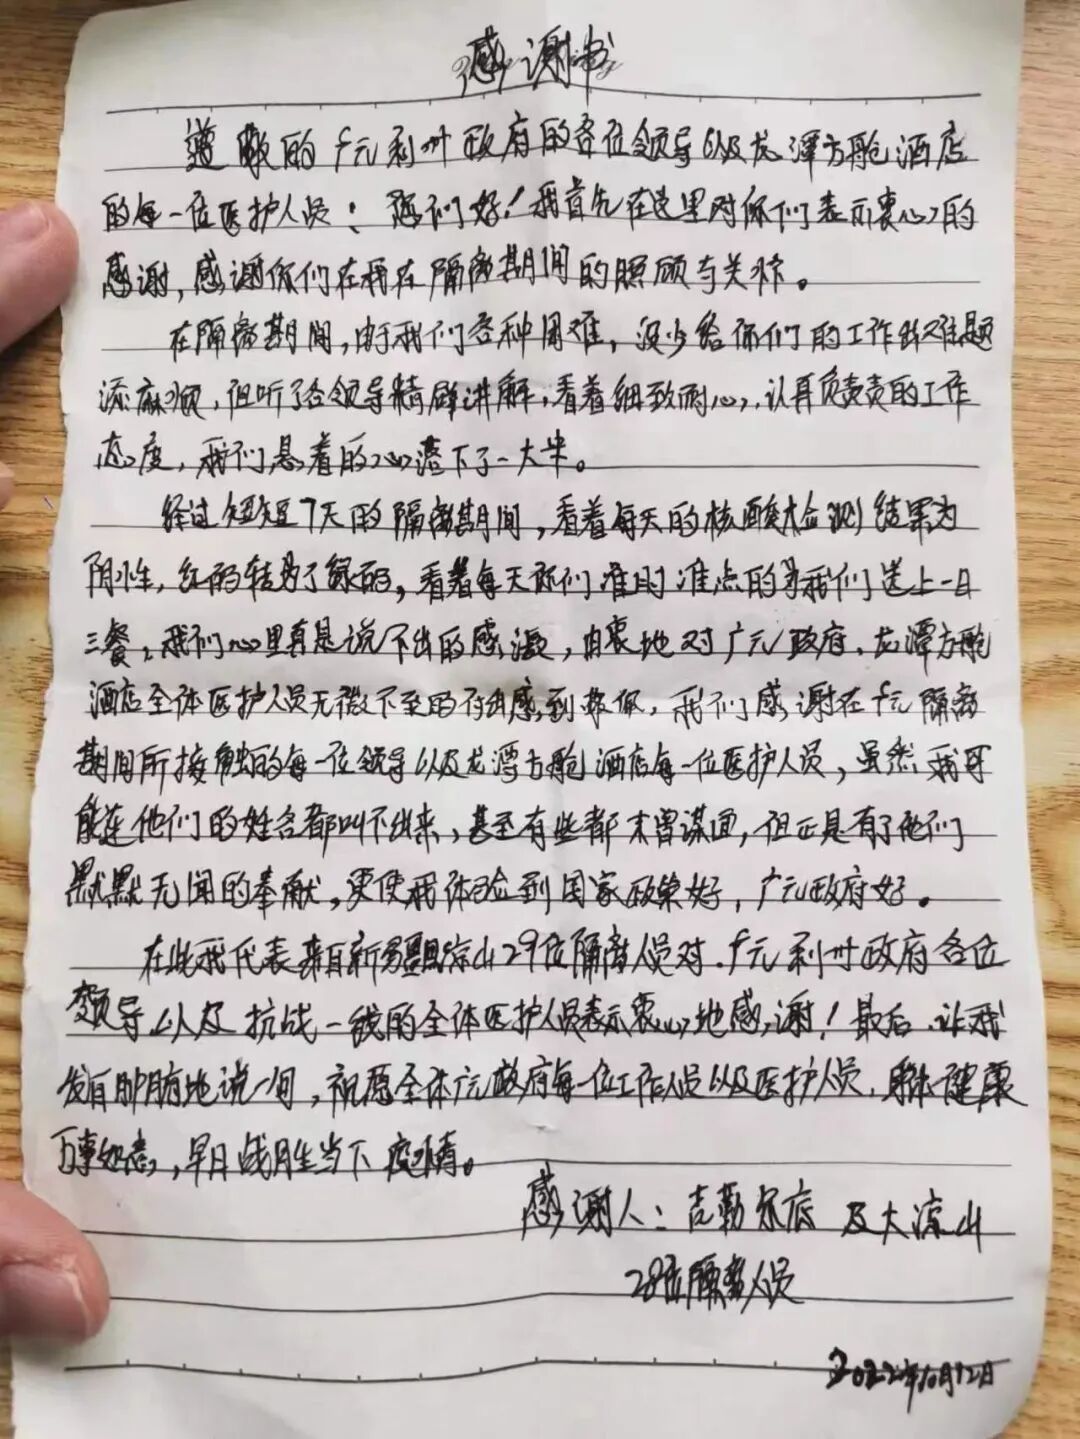 感谢书
尊敬的广元利州政府的各位领导以及龙潭方舱酒店
的每一位医护人员！你们好！我首先在这里对你们表示衷心的
感谢，感谢你们在我在隔离期间的照顾与关怀。
在隔离期间，由于我们各种困难，没少给你们的工作难题
添麻烦，但听了各领导精辟讲解，看着细致耐心、认真负责的工作
态度，我们悬着的心落下了一大半。
经过短短7天的隔离期间，看着每天的核酸检测结果为
阴性，红码转为了绿码，看着每天你们准时准点的为我们送上一日
三餐，我们心里真是说不出的感激，由衷地对广元政府、龙潭方舱
酒店全体医护人员无微不至的付出感到敬佩，我们感谢在广元隔离
期间所接触的每一位领导以及龙潭方舱酒店每一位医护人员，虽然我可
能连他们的姓名都叫不出来，甚至有些都未曾谋面，但正是有了他们
默默无闻的奉献，更使我体验到国家政策好，广元政府好。
在此我代表来自新疆29位隔离人员对广元利州政府各位
领导以及抗战一线的全体医护人员表示衷心地感谢！最后，让我
发自肺腑地说一句，祝愿全体广元政府每一位工作人员以及医护人员，身体健康
万事如意，早日战胜当下疫情。
感谢人：吉勒尔底及大凉山
28位隔离人员
2022年10月12日